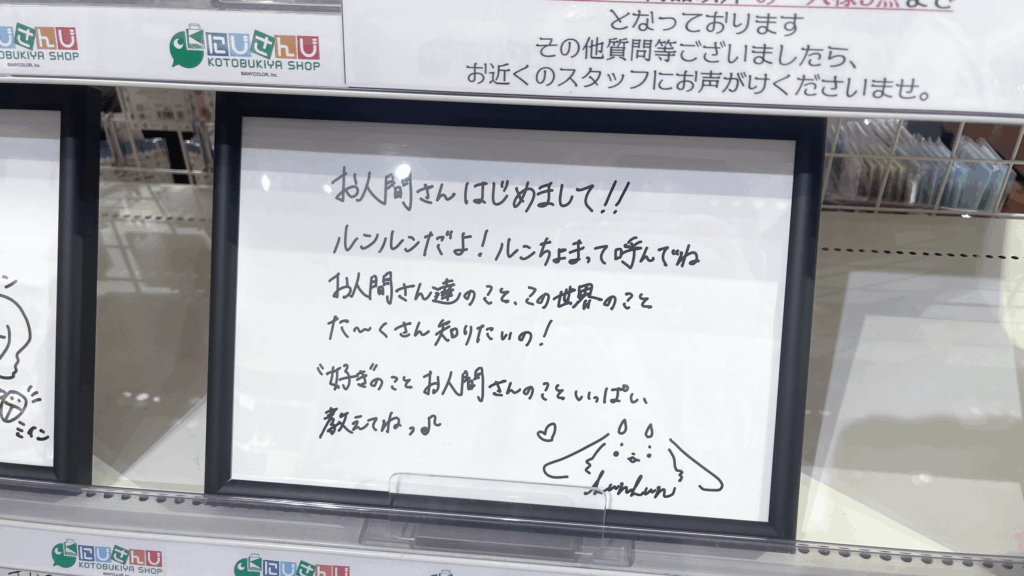 にじさんじ
KOTOBUKIYA SHOP
©ANYCOLOR, Inc.
にじさんじ
KOTOBUKIYA SHOP
©ANYCOLOR, Inc.
となっております
その他質問等ございましたら、
お近くのスタッフにお声がけくださいませ。
お人間さんはじめまして!!
ルンルンだよ!ルンちょまって呼んでね
お人間さん達のこと、この世界のこと
た〜くさん知りたいの!
"好き"のこと お人間さんのこといっぱい、
教えてねっ♪
LunLun
ミイン
にじさんじ
KOTOBUKIYA SHOP
にじさんじ
KOTOBUKIYA SHOP